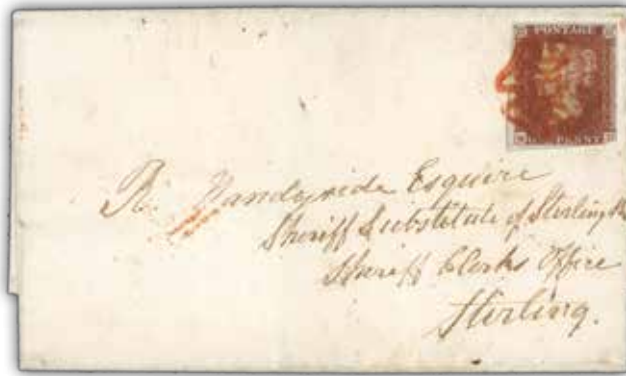 POSTAGE
PENNY
R. Handyside Esquire
Sheriff Substitute of Stirling
Sheriff Clerks Office
Stirling.